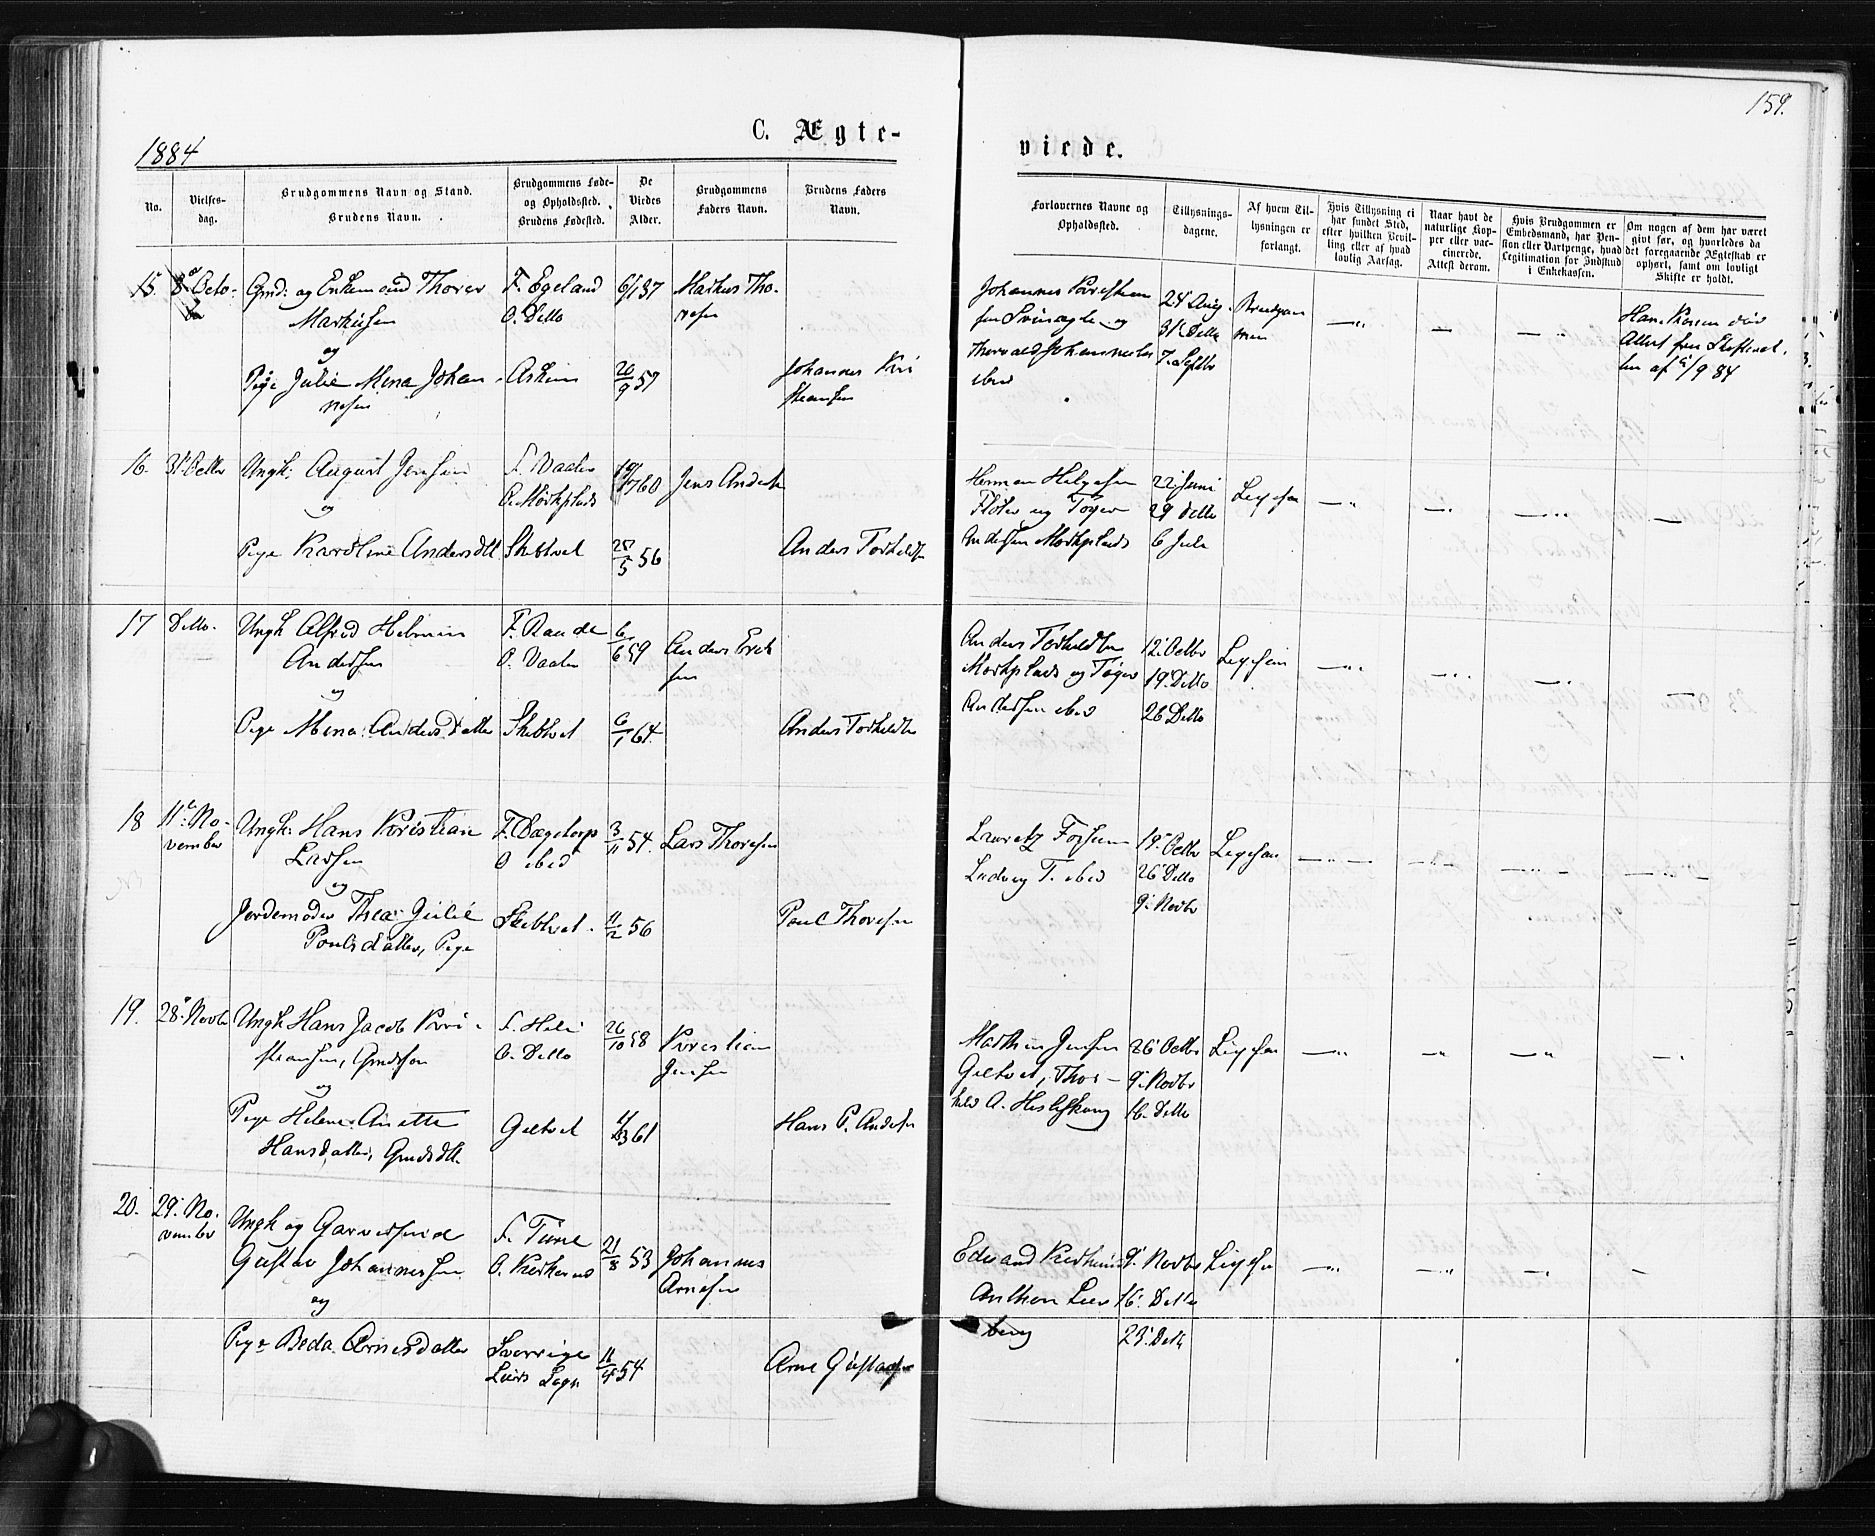 159.
1884
C. Ægte-
viede.
No.
Vielses-
dag.
Brudgommens Navn og Stand.
Brudens Navn.
Brudgommens Føde-
og Opholdssted.
Brudens Fødested.
De
Viedes
Alder.
Brudgommens
Faders Navn.
Brudens Faders
Navn.
Forlovernes Navne og
Opholdssted.
Tillysnings-
dagene.
Af hvem Til-
lysningen er
forlangt.
Hvis Tillysning ei
har fundet Sted,
efter hvilken Bevil-
ling eller af hvad
lovlig Aarsag.
Naar havt de
naturlige Kop-
per eller vac-
cinerede.
Attest derom.
Hvis Brudgommen er
Embedsmand, har Pen-
sion eller Vartpenge, hvad
Legitimation for Indskud
i Enkekassen.
Om nogen af dem har været
givt før, og hvorledes da
det foregaaende Ægteskab er
ophørt, samt om lovligt
Skifte er holdt.
15. Octo-
ber
Gmd: og Enkemand Thorer
Markusen
og
Pige Julie Mina Johan-
nesen
F. Egeland
O. Ditto
Askim
6/1 37
20/9 57
Markus Tho-
resen
Johannes Kri
stiansen
Johannes Kristian
sen Svinægle og
Thorvald Johannesen
ibid
24 Aug.
31. Ditto
7. Septbr
Brudgom
men
Hans Konen død
Attest fra Skifteret
ten af /9 84
16. 31 Octbr
Ungk: August Jensen
og
Pige Karoline Andersdtt
F. Vaaler
O. Morkplads
Skibtvet
60
25/5 56
Jens Anders
Anders Torkelds
Herman Helgesen
Floter og Toger
Andersen Morkplads
22 Juni
29 Ditto
6 Juli
Ligesaa
17 Ditto.
Ungk Alfred Helmin
Andersen
og
Pige Mina Andersdatter
F. Raade
O. Vaaler
Skibtvet
6/6 59
6/1 64
Anders Erik
sen
Anders Torkelds
Anders Torkelds
Morkplads og Toger
Andersen ibid
12. Octbr
19. Ditto
26 Ditto
Ligesaa
18 11. No-
vember
Ungk: Hans Kristian
Larsen
og
Jordemoder Thea Julie
Poulsdatter, Pige
F. Degetorp
O ibid
Skibtvet.
3/11 54.
11/2 56
Lars Thoresen
Poul Thoresen
Lauretz Fossum
Ludvig T. ibid
19. Octbr
26 Ditto
9. Novbr
Ligesaa
19. 28. Novbr
Ungk Hans Jacob Kri-
stiansen, Gmdssøn
og
Pige Helene Anette
Hansdatter, Gmdsdtt.
F. Heli
O. Ditto
Gietvet
26/10 58
61
Kristian
Jensen
Hans P. Anders
Mathias Jensen
Gietvet, Thor-
26 Octbr
9. Novbr
16. Ditto
Ligesaa
20. 29. No.
vember
Ungk og Garversvend
Gustav Johannessen
og
Pige Beda Arnesdatter
F. Tune
O. Kirkerud
Sverrige
Sogn
21/8 53
11/4 54
Johannes
Arnesen
Arne Gustavs
Edvard Kirkerud
Anthon Lier
berg
9. Novbr
16. Ditto
23. Ditto
Ligesaa